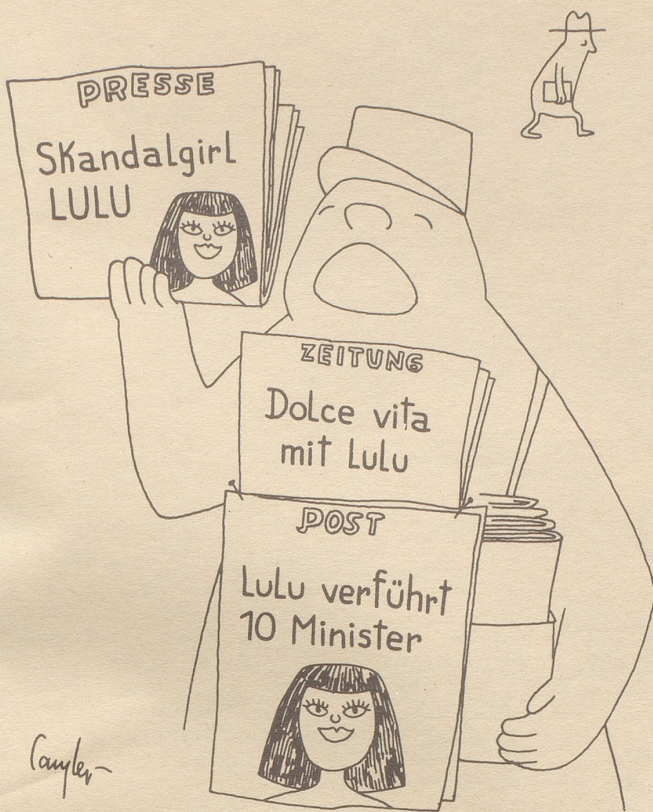 PRESSE
Skandalgirl
LULU
ZEITUNG
Dolce vita
mit Lulu
POST
Lulu verführt
10 Minister